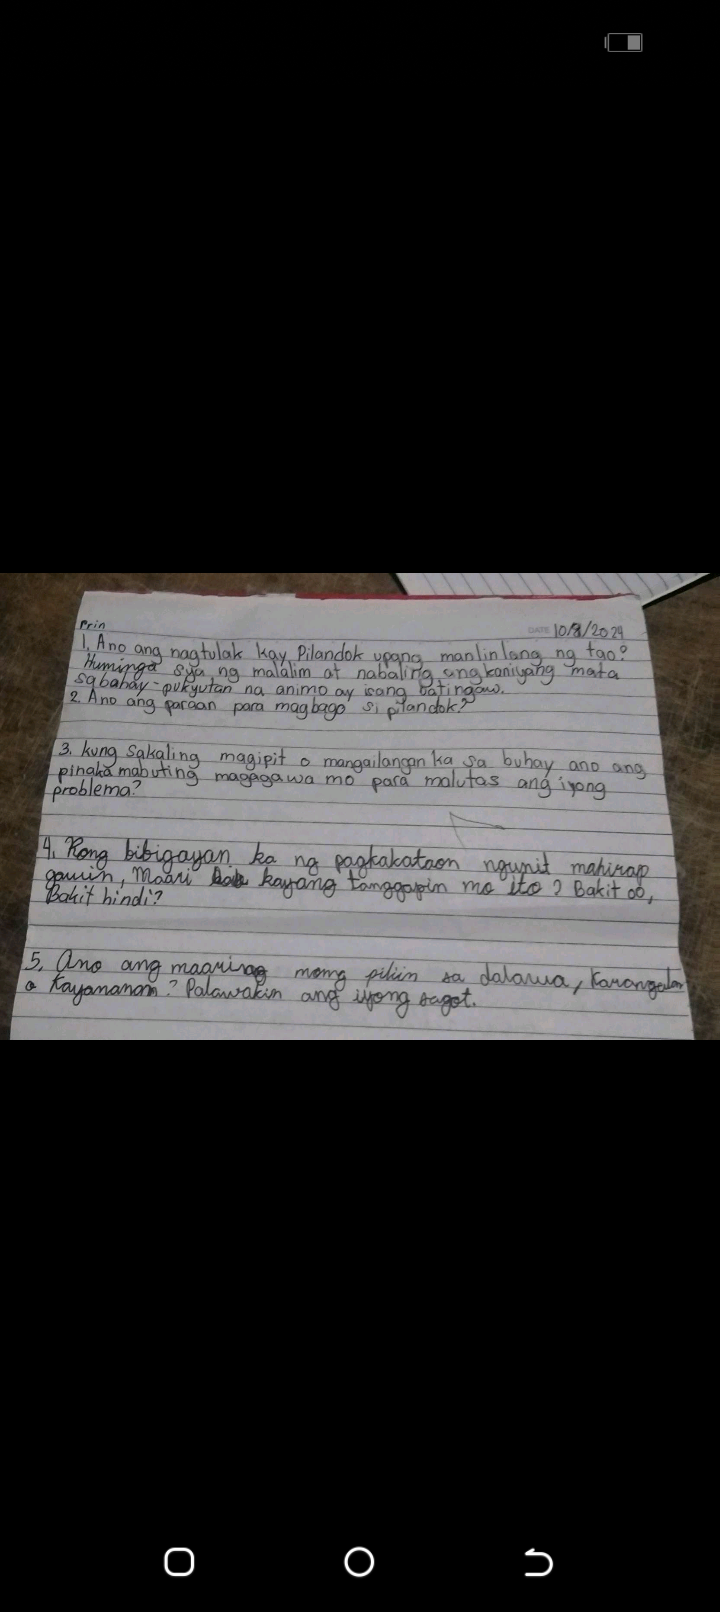 Prin
DATE 10/8/2024
1. Ano ang nagtulak kay Pilandok upang manlinlang ng tao?
Huminga sya ng malalim at nabaling ang kaniyang mata
sa bahay-pukyutan na animo ay isang batingaw.
2. Ano ang paraan para magbago si pilandok?
3. kung sakaling magipit o mangailangan ka sa buhay ano ang
pinaka mabuting magagawa mo para malutas ang iyong
problema?
4. Kong bibigayan ka ng pagkakataon ngunit mahirap
gawin, Maari kayang tanggapin mo ito? Bakit oo,
Bakit hindi?
5. Ano ang maaring mong piliin sa dalawa, Karangalan
o Kayamanan? Palawakin ang iyong sagot.